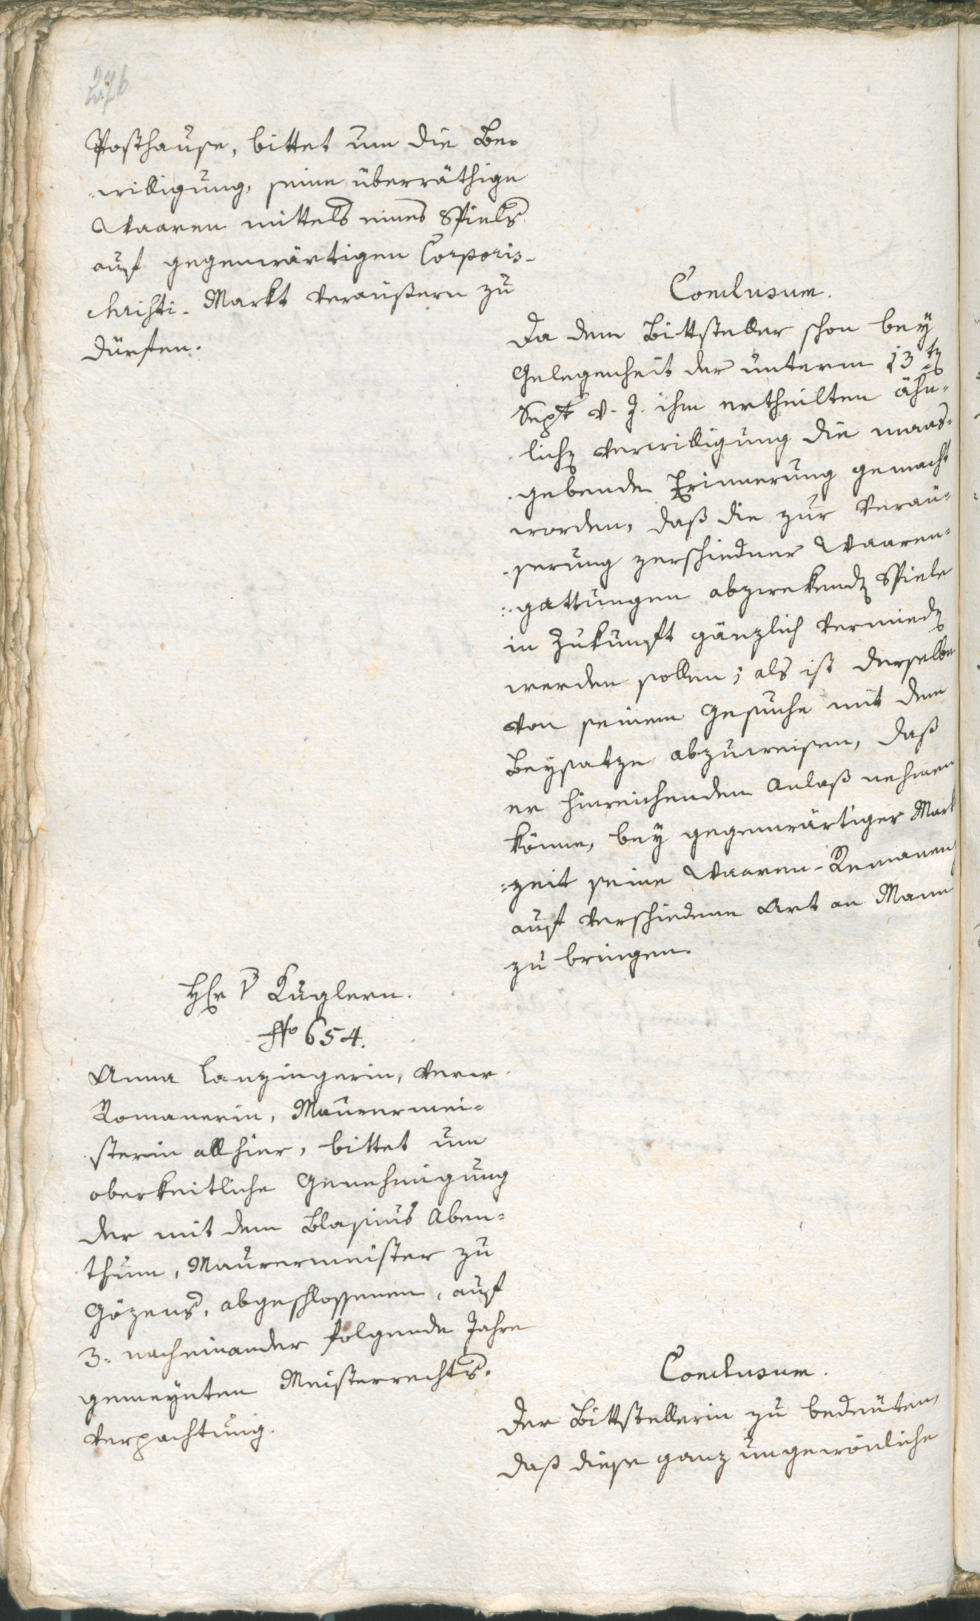 276
Posthause, bittet um die Be-
willigung, seine überräthige
Waaren mittels eines Spiels
auf gegenwärtigen Corporis-
christi-Markt veräußern zu
dürfen.
Conclusum.
Da dem Bittsteller schon bey
Gelegenheit der unterm 13t
Sept v. J. ihm ertheilten ähn-
lichen Verwilligung die maas-
gebende Erinnerung gemacht
worden, daß die zur Veräu-
serung zerschiedner Waaren-
gattungen abzwekende Spiele
in Zukunft gänzlich vermieden
werden sollen; als ist derselbe
von seinem Gesuche mit dem
Beysatze abzuweisen, daß
er hinreichenden Anlaß nehmen
könne, bey gegenwärtiger Markt
=zeit seine Waaren-Remanenz
auf verschiedene Art an Mann
zu bringen.
H v Kuglern.
No 654.
Anna Lanzingerin, verw
Romanerin, Maurermei-
sterin allhier, bittet um
oberkeitliche Genehmigung
der mit dem Blasius Aben-
thum, Maurermeister zu
Gözens, abgeschlossenen, auf
3. nacheinander folgende Jahre
gemeynten Meisterrechts-
verpachtung.
Conclusum.
Der Bittstellerin zu bedeuten,
daß diese ganz ungewönliche